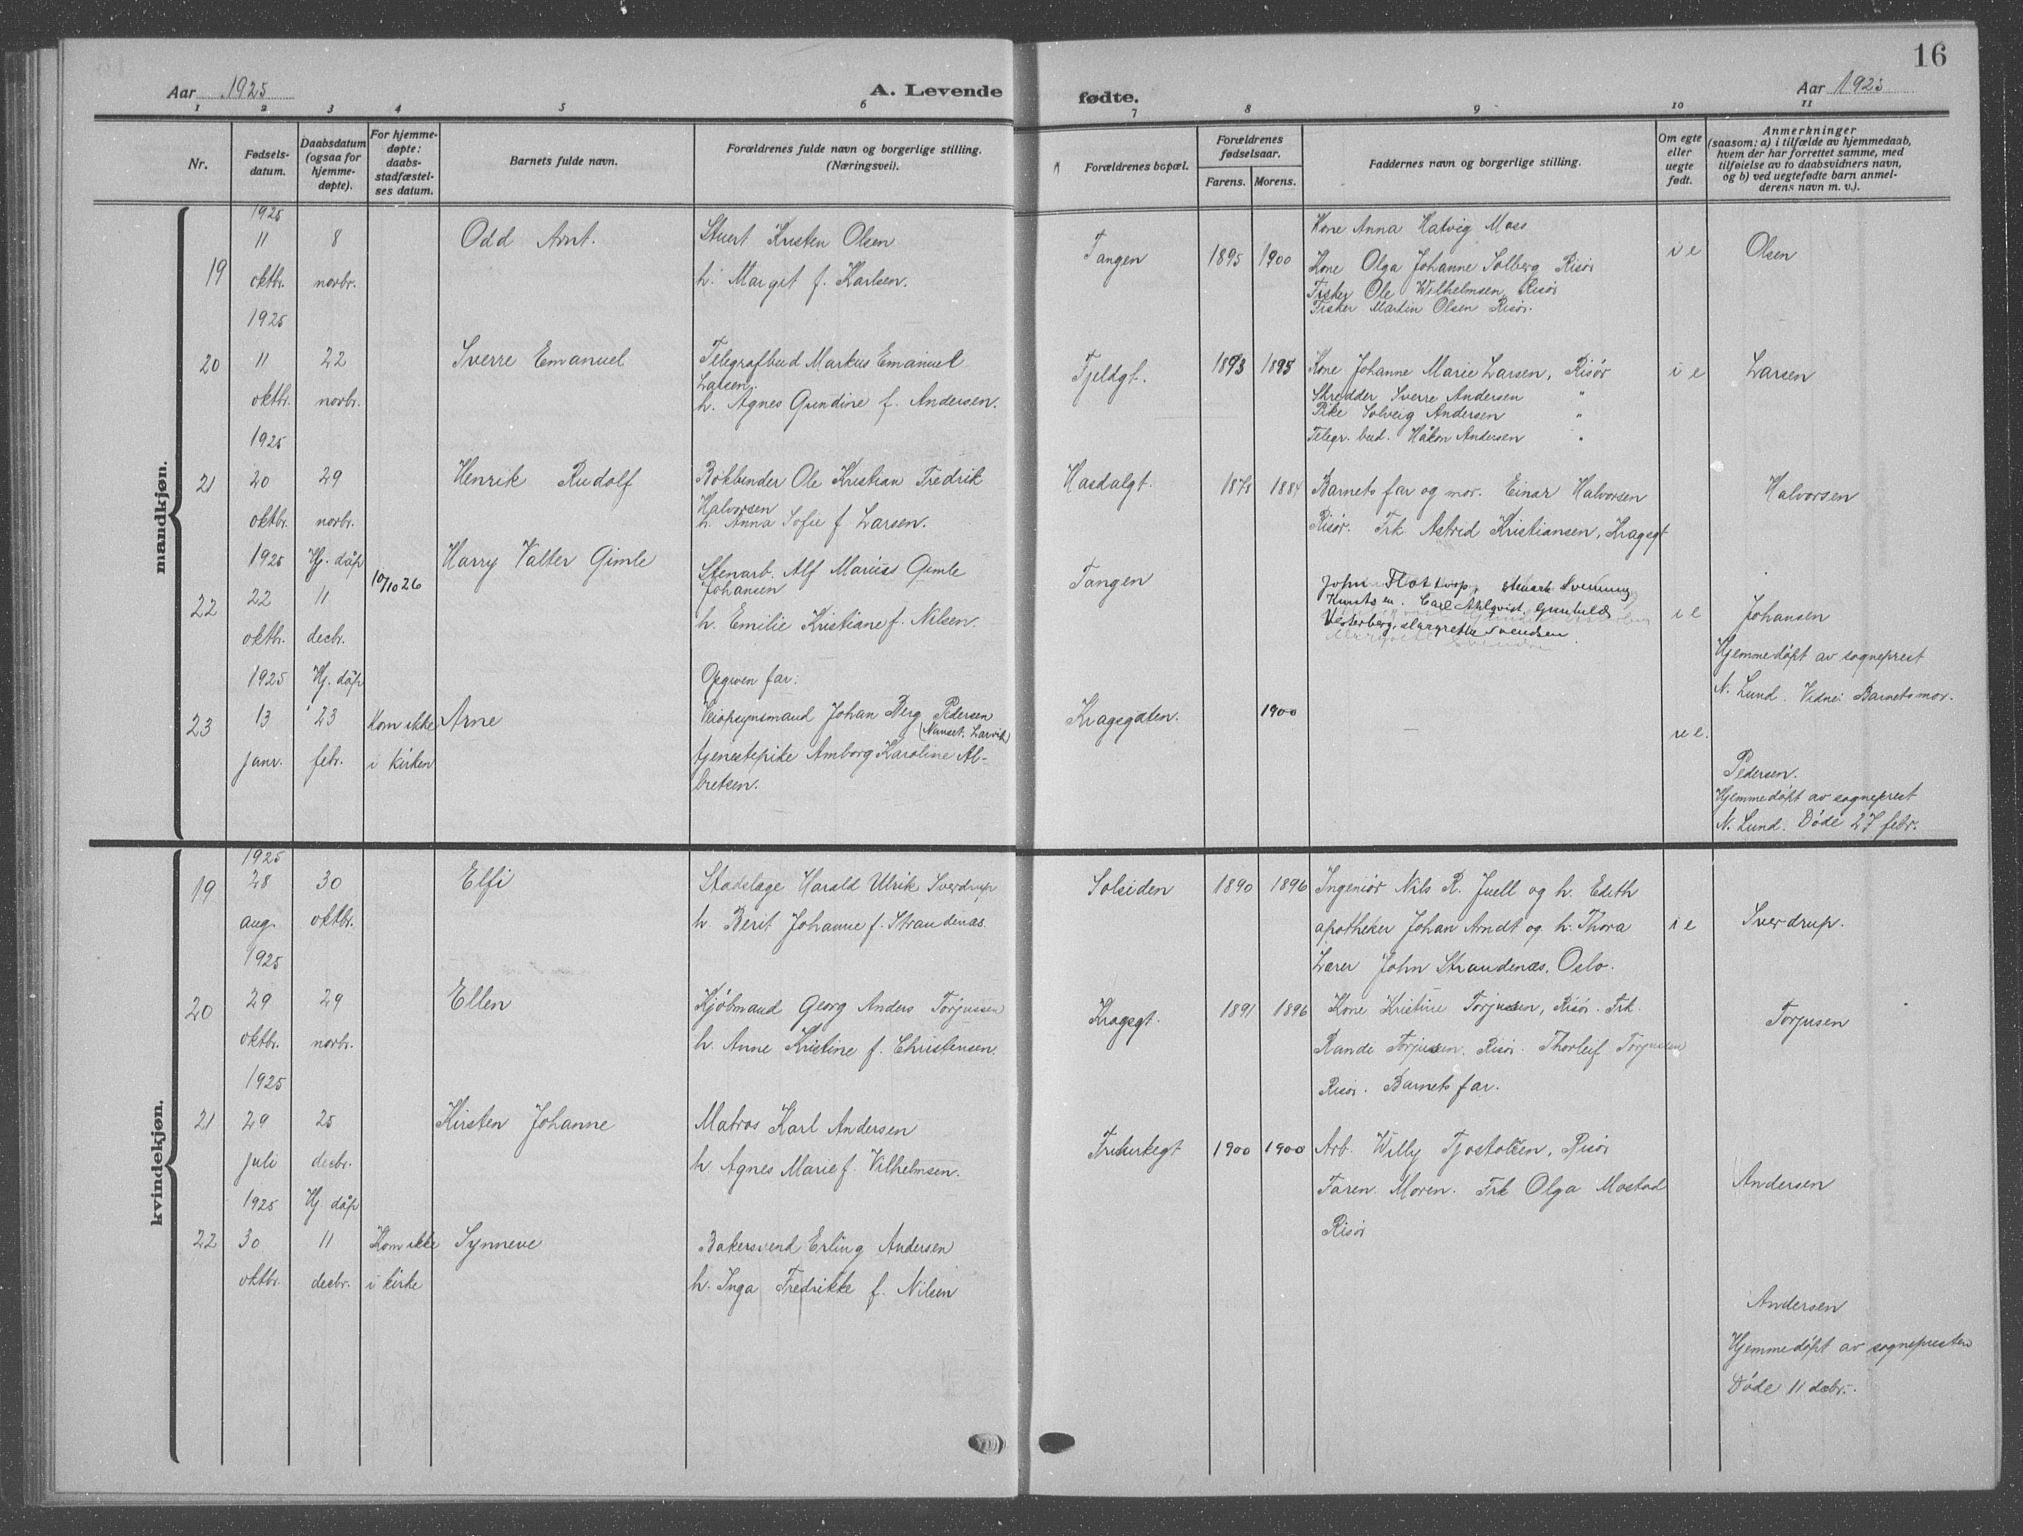 16
Aar 1925
A. Levende fødte.
Aar 1925
1 2 3 4 5 6 7 8 9 10 11
Nr.
Fødsels-
datum.
Daabsdatum
(ogsaa for
hjemme-
døpte).
For hjemme-
døpte:
daabs-
stadfæstel-
ses datum.
Barnets fulde navn.
Forældrenes fulde navn og borgerlige stilling.
(Næringsvei).
Forældrenes bopæl.
Forældrenes
fødselsaar.
Farens. Morens.
Faddernes navn og borgerlige stilling.
Om egte
eller
uegte
født.
Anmerkninger
(saasom: a) i tilfælde av hjemmedaab,
hvem der har forrettet samme, med
tilføielse av to daabsvidners navn,
og b) ved uegtefødte barn anmel-
derens navn m. v.).
mandkjøn.
1925
19 11 8 Odd Arnt. Stuert Kristen Olsen
oktbr. norbr. h: Margit f. Karlsen.
Tangen 1895 1900
Kone Anna Hatvig Moss
Kone Olga Johanne Solberg Risør
Fisker Ole Wilhelmsen Risør
Fisker Martin Olsen Risør.
i e Olsen
1925
20 11 22 Sverre Emanuel Telegrafbud Markus Emanuel
Larsen.
oktbr. norbr. h. Agnes Gundine f. Andersen.
Fjeldgt. 1893 1895
Kone Johanne Marie Larsen, Risør
Skredder Sverre Andersen "
Pike Solveig Andersen "
Telegr. bud. Håkon Andersen "
i e Larsen
1925
21 20 29 Henrik Rudolf Bokbinder Ole Kristian Fredrik
Halvorsen
oktbr. norbr. h. Anna Sofie f. Larsen.
Hasdalgt. 1878 1884
Barnets far og mor. Einar Halvorsen
Risør. Frk Astrid Kristiansen, Kragsgt
Halvorsen
1925 Hj. døp 10/10 26 Harry Valter Gimle Stenarb. Alf Marius Gimle
Johansen
22 22 11
oktbr. decbr. h. Emilie Kristiane f. Nilsen.
Tangen
John Flat
Carl Ahlqvist, Gunhild
Vesterberg, Margrethe Svendsen.
i e Johansen
Hjemmedøpt av sogneprest
N. Lund. Vidne: Barnets mor.
1925 Hj. døp Opgiven far:
23 13 23 Kom ikke Arne Veiopsynsmand Johan Berg Pedersen
(Nanset. Larvik)
janr. febr. i kirken tjenestepike Amborg Karoline Al-
bretsen.
Kragsgaten. 1900
u e.
Pedersen.
Hjemmedøpt av sogneprest
N. Lund. Døde 27 febr.
kvindekjøn.
1925
19 28 30 Elfi Stadslæge Harald Ulrik Sverdrup
aug. oktbr. h Berit Johanne f. Strandenæs.
Solsiden 1890 1896
Ingeniør Nils R. Juell og h. Edith
apotheker Johan Arndt og h. Thora
Lærer John Strandenæs, Oslo.
i e Sverdrup.
1925
20 29 29 Ellen Kjøbmand Georg Anders Torjussen
oktbr. norbr. h. Anne Kristine f. Christensen.
Kragsgt. 1891 1896
Kone Kristine Torjusen, Risør. Frk.
Randi Torjusen. Risør. Thorleif Torjusen
Risør. Barnets far.
Torjusen
1925
21 29 25 Kirsten Johanne Matros Karl Andersen
juli decbr. h. Agnes Marie f. Vilhelmsen.
1900 1900
Arb. Willy Tjostolsen, Risør
Faren. Moren. Frk Olga Mostad
Risør
Andersen
1925 Hj. døp
22 30 11 Kom ikke Synneve Bakersvend Erling Andersen
oktbr. decbr. i kirke h. Inga Fredrikke f. Nilsen
Andersen
Hjemmedøpt av sognepresten
Døde 11 decbr.